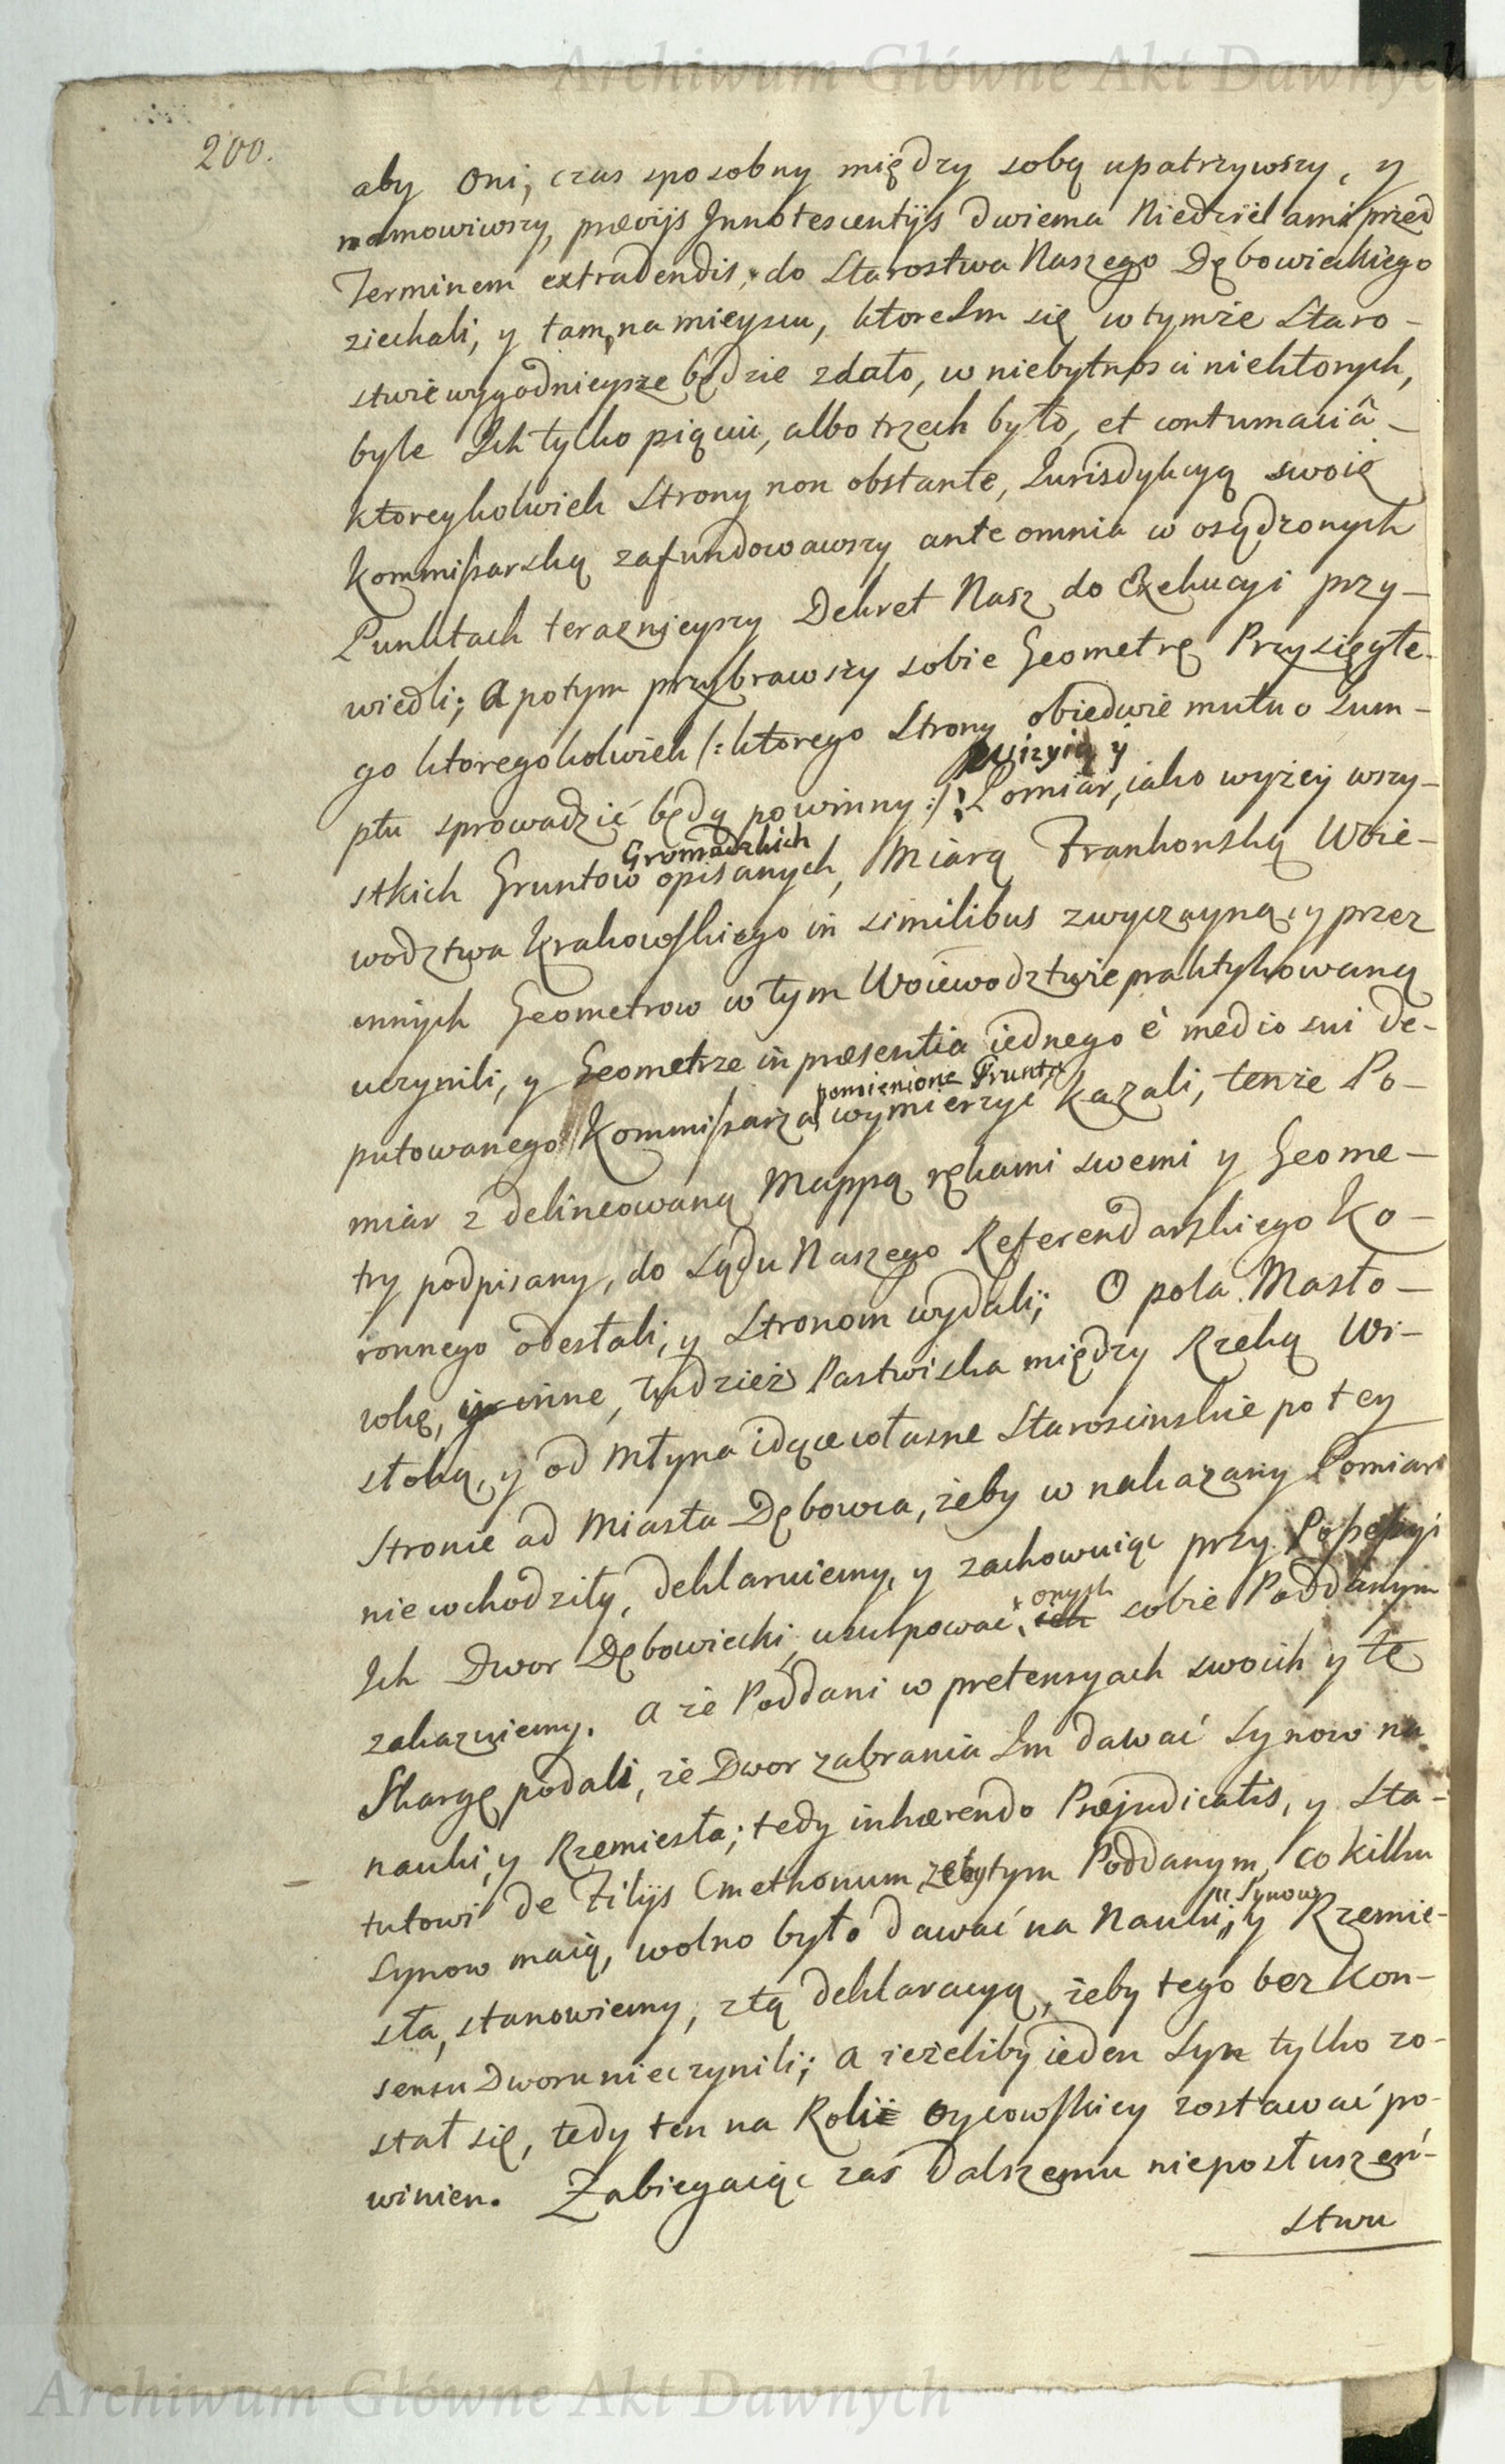 Archiwum Główne Akt Dawnych
200.
aby oni, czas sposobny między sobą upatrzywszy, y
namowiwszy, prævijs Innotescentijs dwiema Niedzielami przed
Terminem extradendis, do Starostwa Naszego Dębowieckiego
ziechali, y tam, na mieyscu, ktore Im się w tymże Staro-
stwie wygodnieysze będzie zdało, w niebytnosci niektorych,
byle Ich tylko pięciu, albo trzech było, et contumaciâ
ktoreykolwiek Strony non obstante, Jurisdykcyą swoię
Kommissarską zafundowawszy ante omnia w osądzonych
Punktach teraznieyszy Dekret Nasz do Exekucyi przy-
wiedli; a potym przybrawszy sobie Geometrę Przysięgłe-
go ktoregokolwiek /: ktorego Strony obiedwie mutuo Sum-
ptu sprowadzić będą powinny :/ rewizyią y Pomiar, iako wyżey wszy-
stkich Gruntow Gromadzkich opisanych, Miarą Frankonską Woie-
wodztwa Krakowskiego in similibus zwyczayną, y przez
innych Geometrow w tym Woiewodztwie praktykowaną
uczynili, y Geometrze in præsentia iednego è medio sui de-
putowanego Kommissarza pomienione Grunta wymierzyć kazali, tenże Po-
miar z delineowaną Mappą rękami swemi y Geome-
try podpisany, do Sądu Naszego Referendarskiego Ko-
ronnego odesłali, y Stronom wydali; O pola Masło-
wkę, y inne, tudzież Pastwiska między Rzeką Wi-
słoką, y od Młyna idące własne Staroscinskie po tey
Stronie ad Miasta Dębowca, żeby w nakazany Pomiar
nie wchodziły, deklaruiemy, y zachowuiąc przy Possessyi
Ich Dwor Dębowiecki, usurpować ich onych sobie Poddanym
zakazuiemy. A że Poddani w pretensyach swoich y tę
Skargę podali, że Dwor zabrania Im dawać Synow na
nauki, y Rzemiesła; tedy inhærendo Præjudicatis, y Sta-
tutowi de Filijs Cmethonum, żeby tym Poddanym, co kilku
Synow maią, wolno było dawać na Nauki, y Synow Rzemie-
sła, stanowiemy, z tą deklaracyą, żeby tego bez Kon-
sensu Dworu nie czynili; a ieżeliby ieden Syn tylko zo-
stał się, tedy ten na Roli Oycowskiey zostawać po-
winien. Zabiegaiąc zas dalszemu nieposłuszeń-
stwu
Archiwum Główne Akt Dawnych